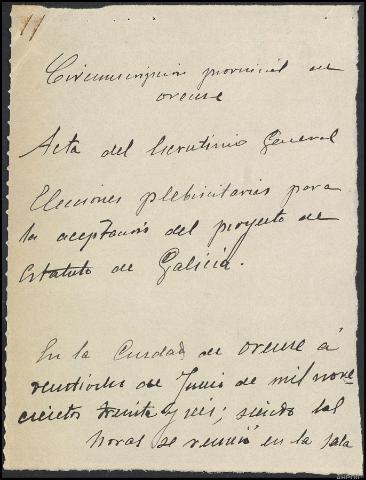 11
Circunscripción provincial de
orense
Acta del Escrutinio General
Elecciones plebiscitarias para
la aceptación del proyecto de
Estatuto de Galicia.
En la Ciudad de orense á
veintiocho de Junio de mil nove-
cientos treinta y seis; siendo las
horas se reunió en la sala